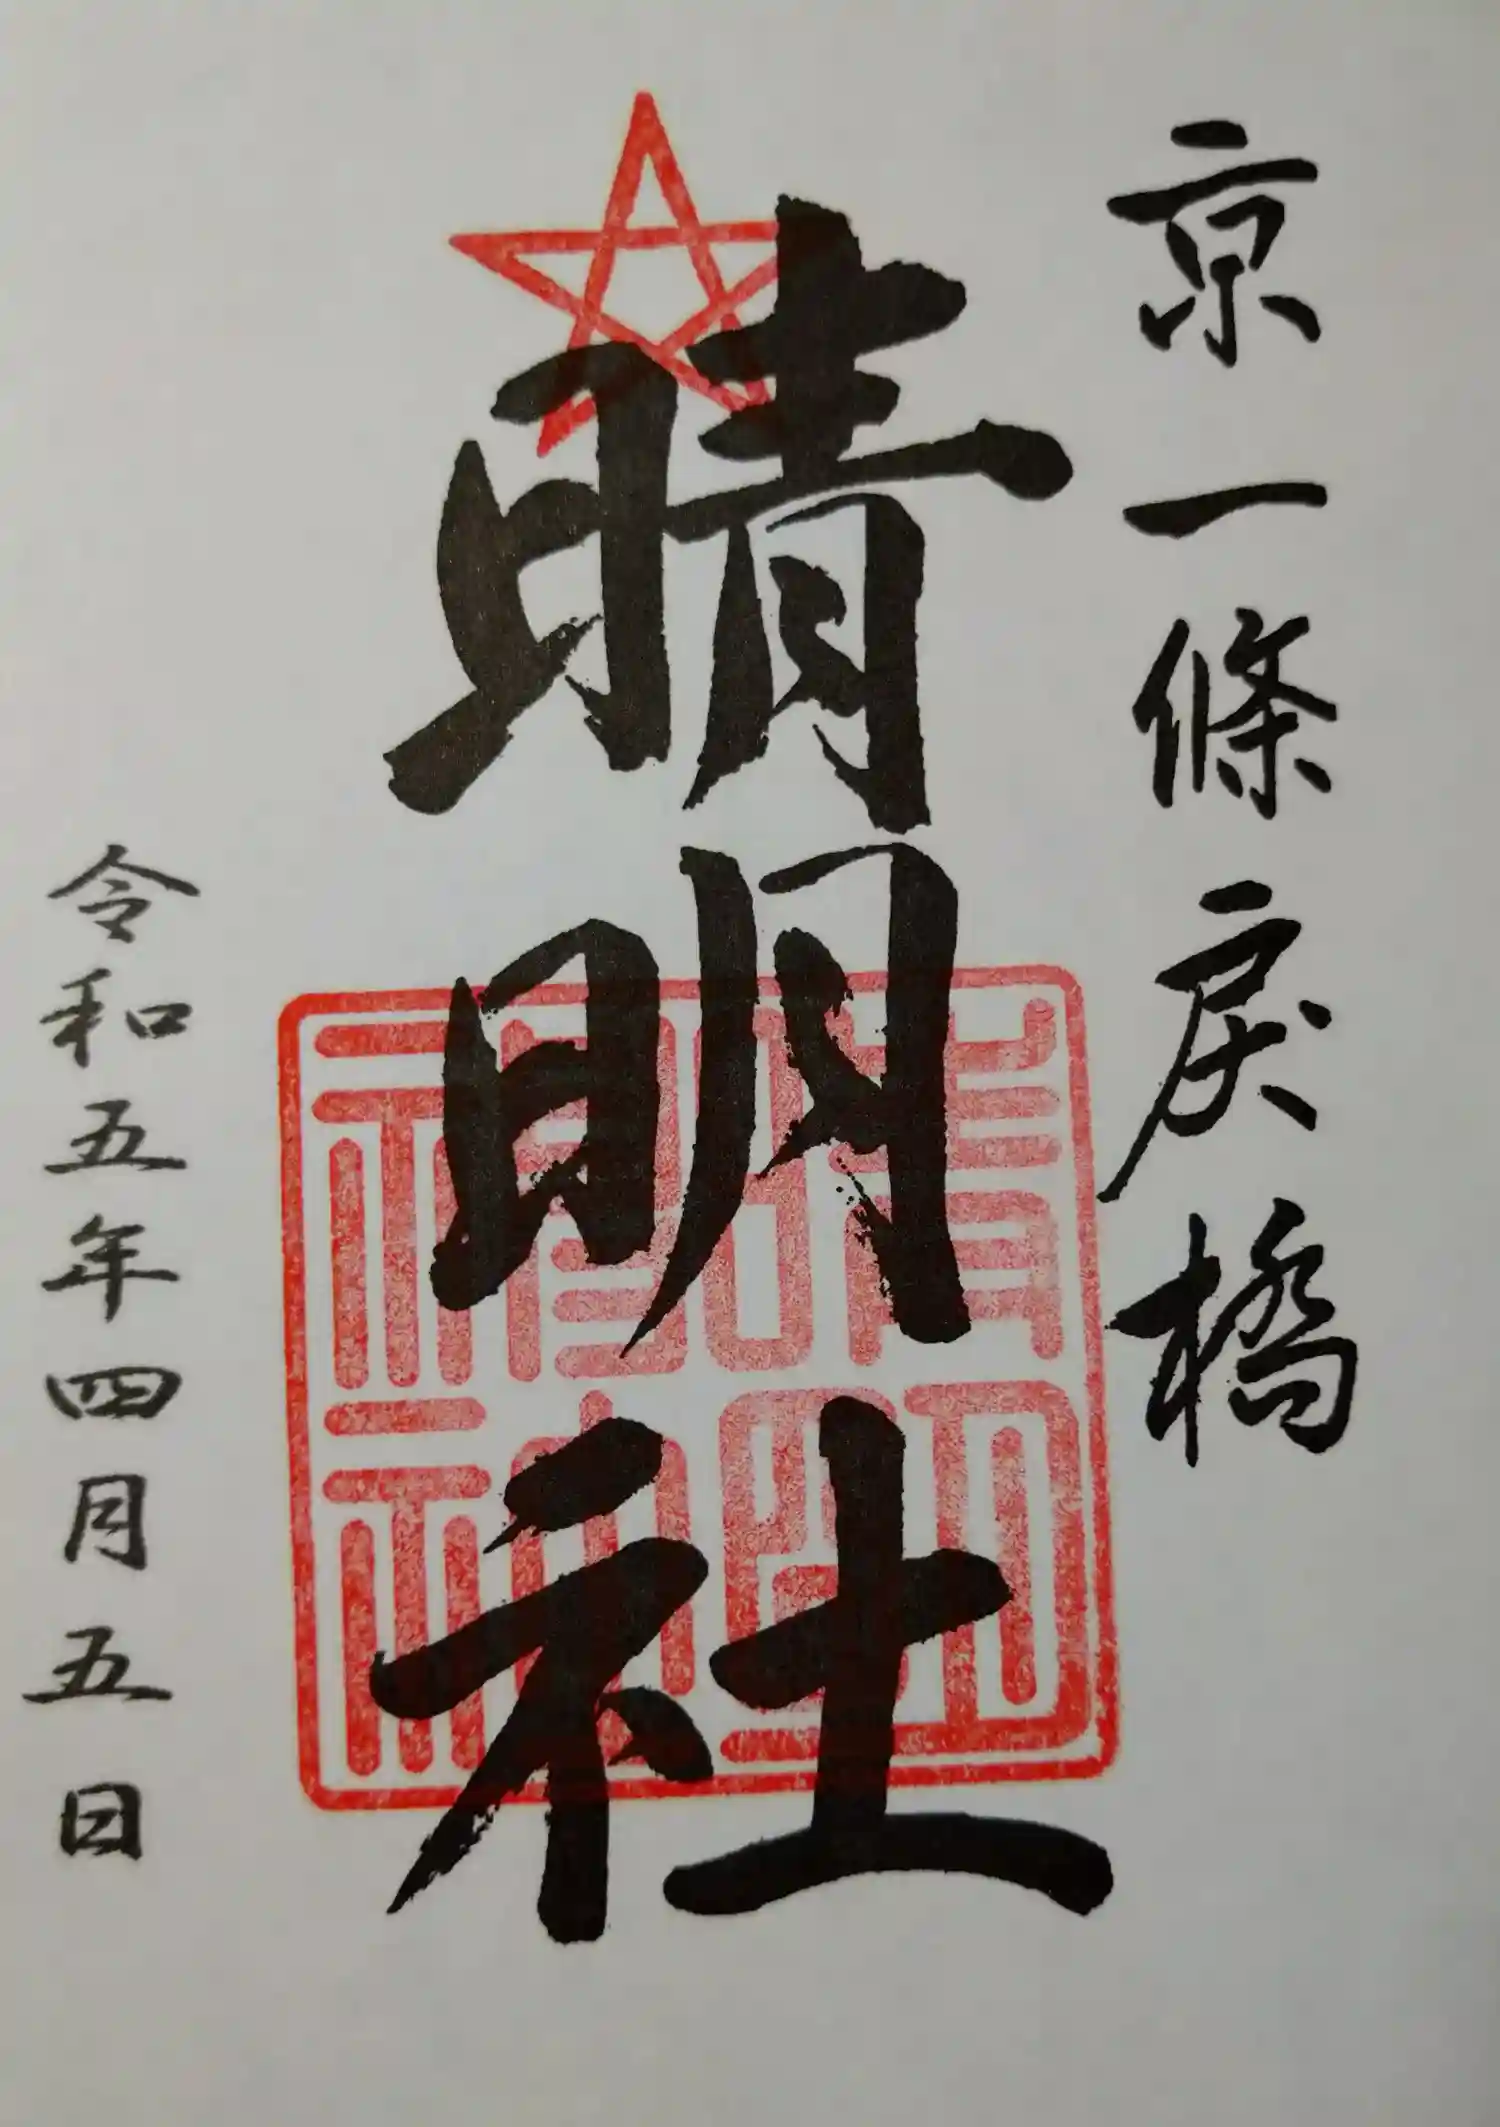 京一條戻橋
晴明社
晴明神社
令和五年四月五日